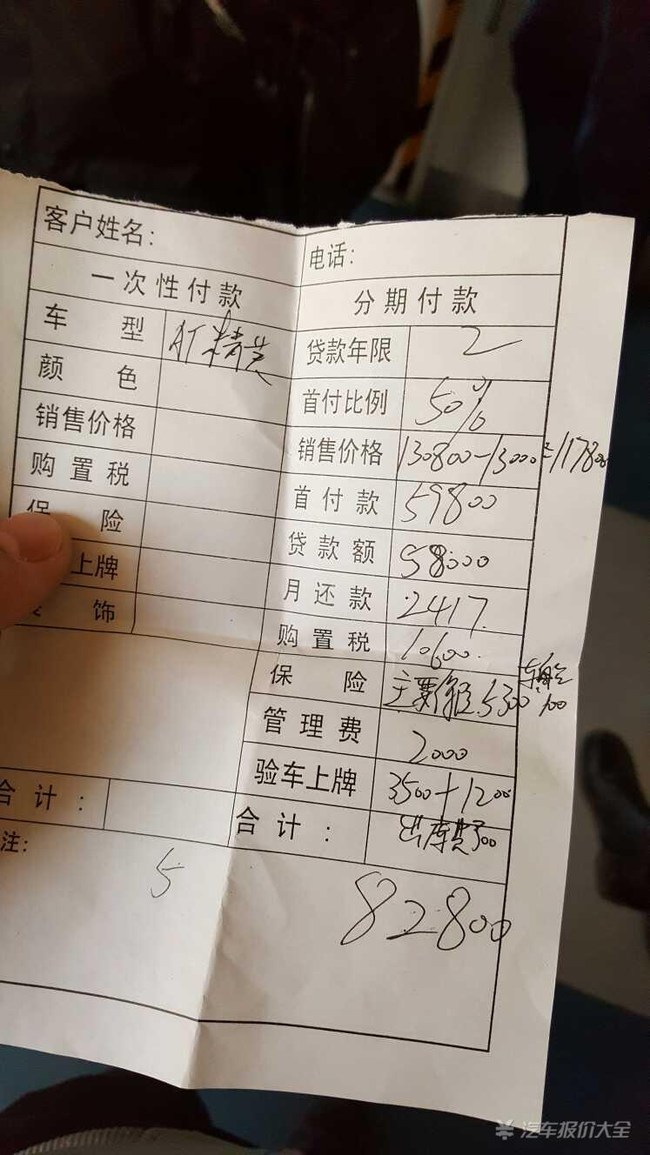 客户姓名：
电话：
一次性付款
分期付款
车型 AT精英
颜色
销售价格
购置税
保险
上牌
饰
合计：
注：
贷款年限 2
首付比例 50%
销售价格 130800-13000=117800
首付款 59800
贷款额 58000
月还款 2417
购置税 10600
保险 主要保险5300
管理费 2000
验车上牌 3500+1200
合计： 出库费500
5
82800
汽车报价大全